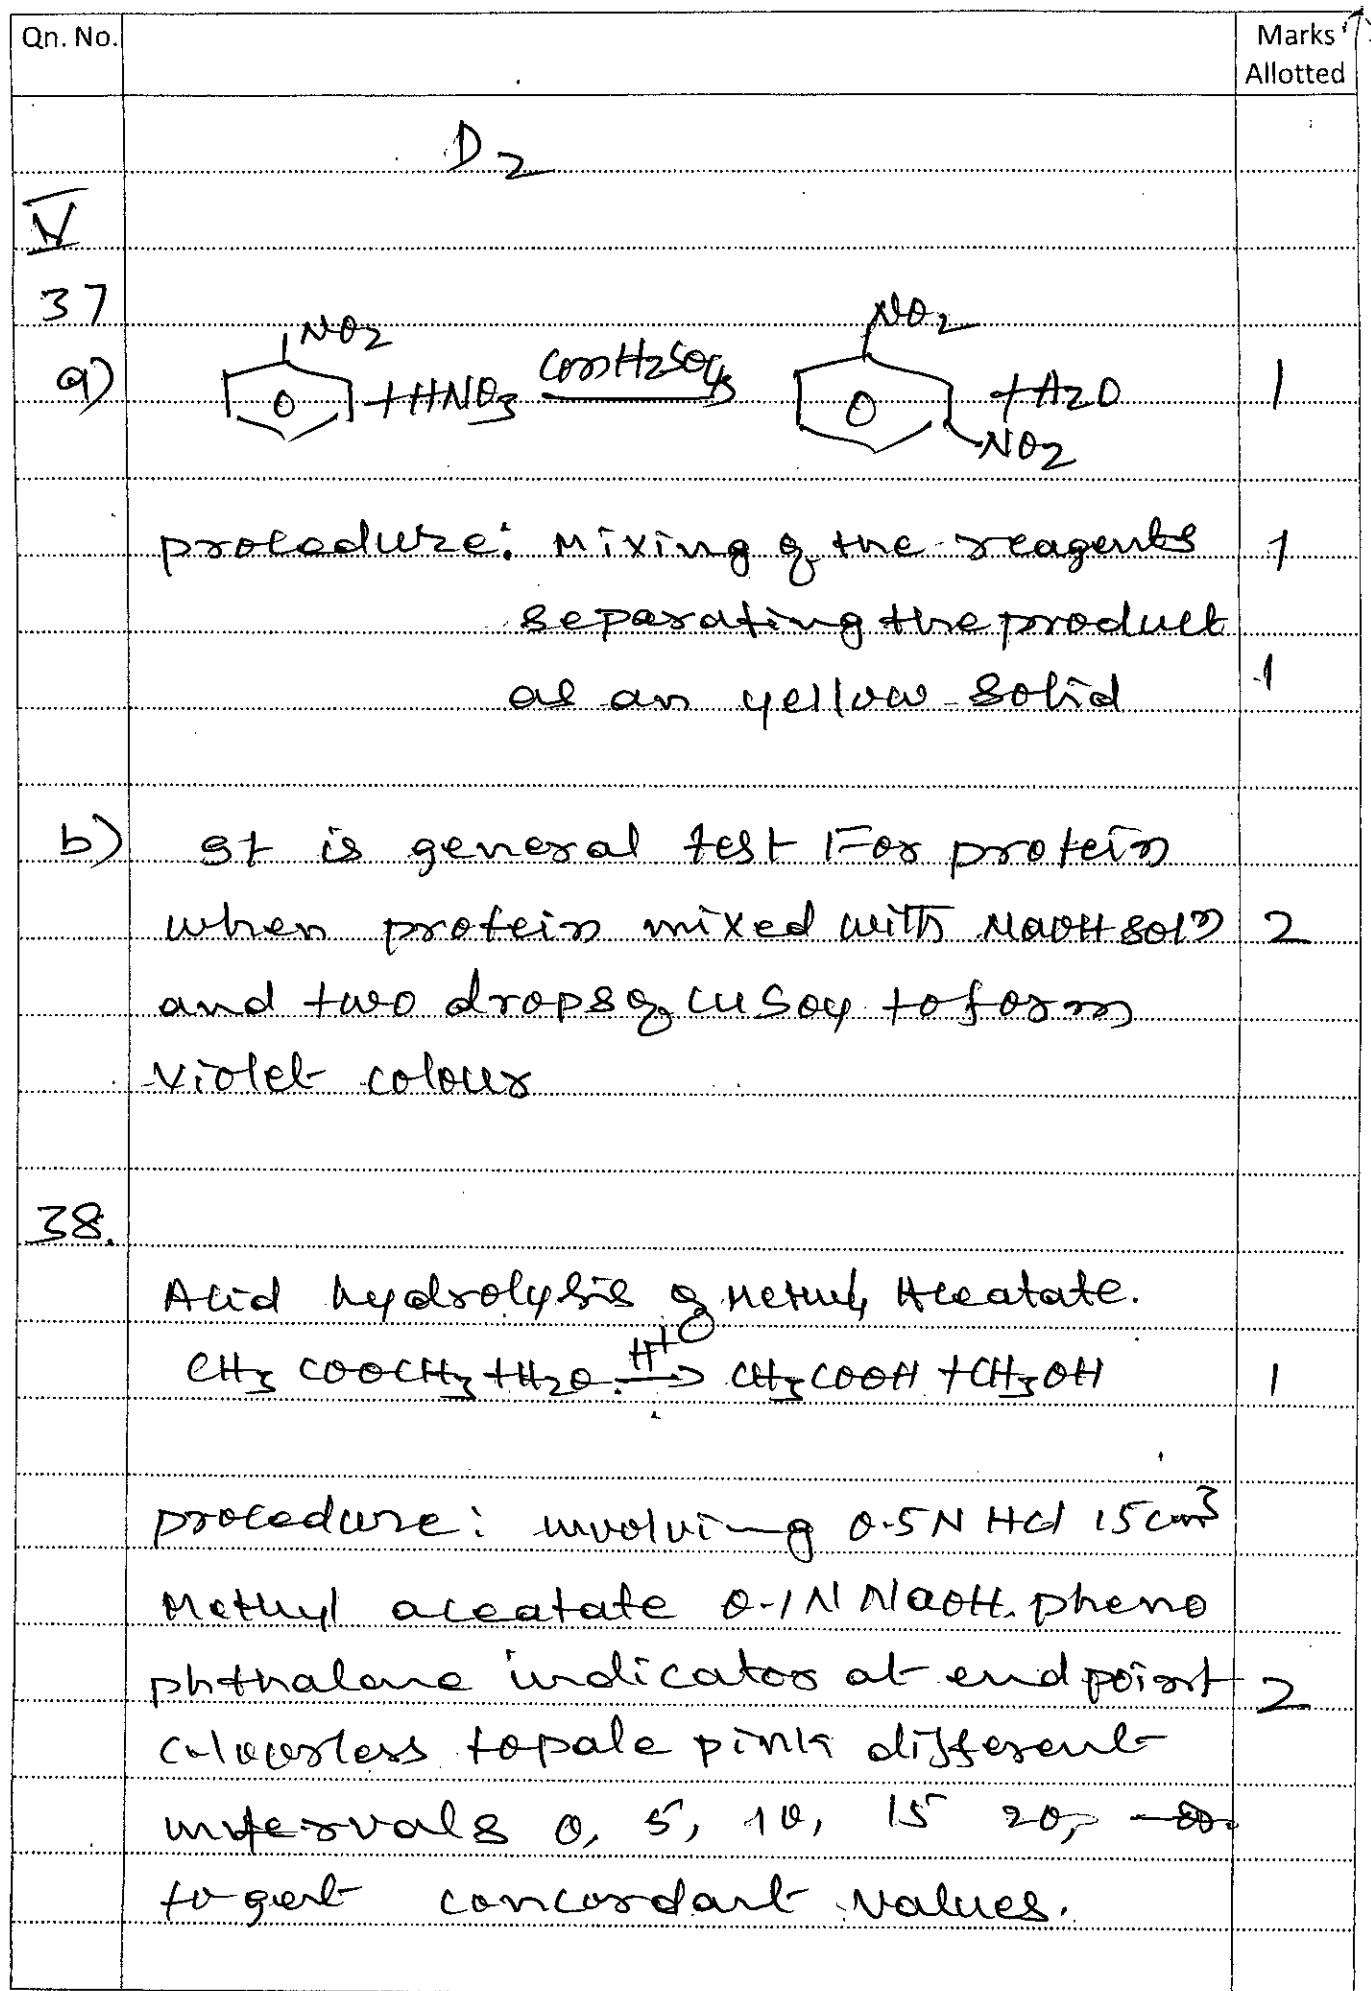 Qn. No. Marks Allotted
D2
IV
37
a) NO2 + HNO3 Con H2SO4 NO2 NO2 + H2O 1
procedure: Mixing of the reagents 1
separating the product
as an yellow solid 1
b) It is general test For protein
when protein mixed with NaOH soln 2
and two drops of CuSO4 to form
violet colour
38.
Acid hydrolysis of Methyl Aceatate.
CH3 COOCH3 + H2O H+ → CH3COOH + CH3OH 1
procedure: involving 0.5N HCl 15cm3
Methyl aceatate 0.1N NaOH. pheno
phthalene indicator at end point 2
colourless to pale pink different
intervals 0, 5, 10, 15 20,
to get concordant values.